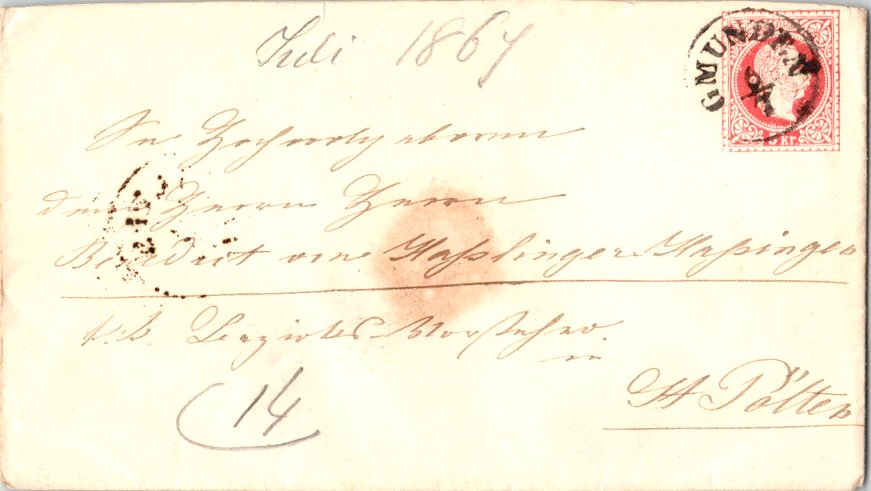 Juli 1867
GMUNDEN
5 kr.
Sr Hochwohlgeboren
dem Herrn Herrn
Benedict von
k.k. Bezirks-Vorsteher
in
St Pölten
14